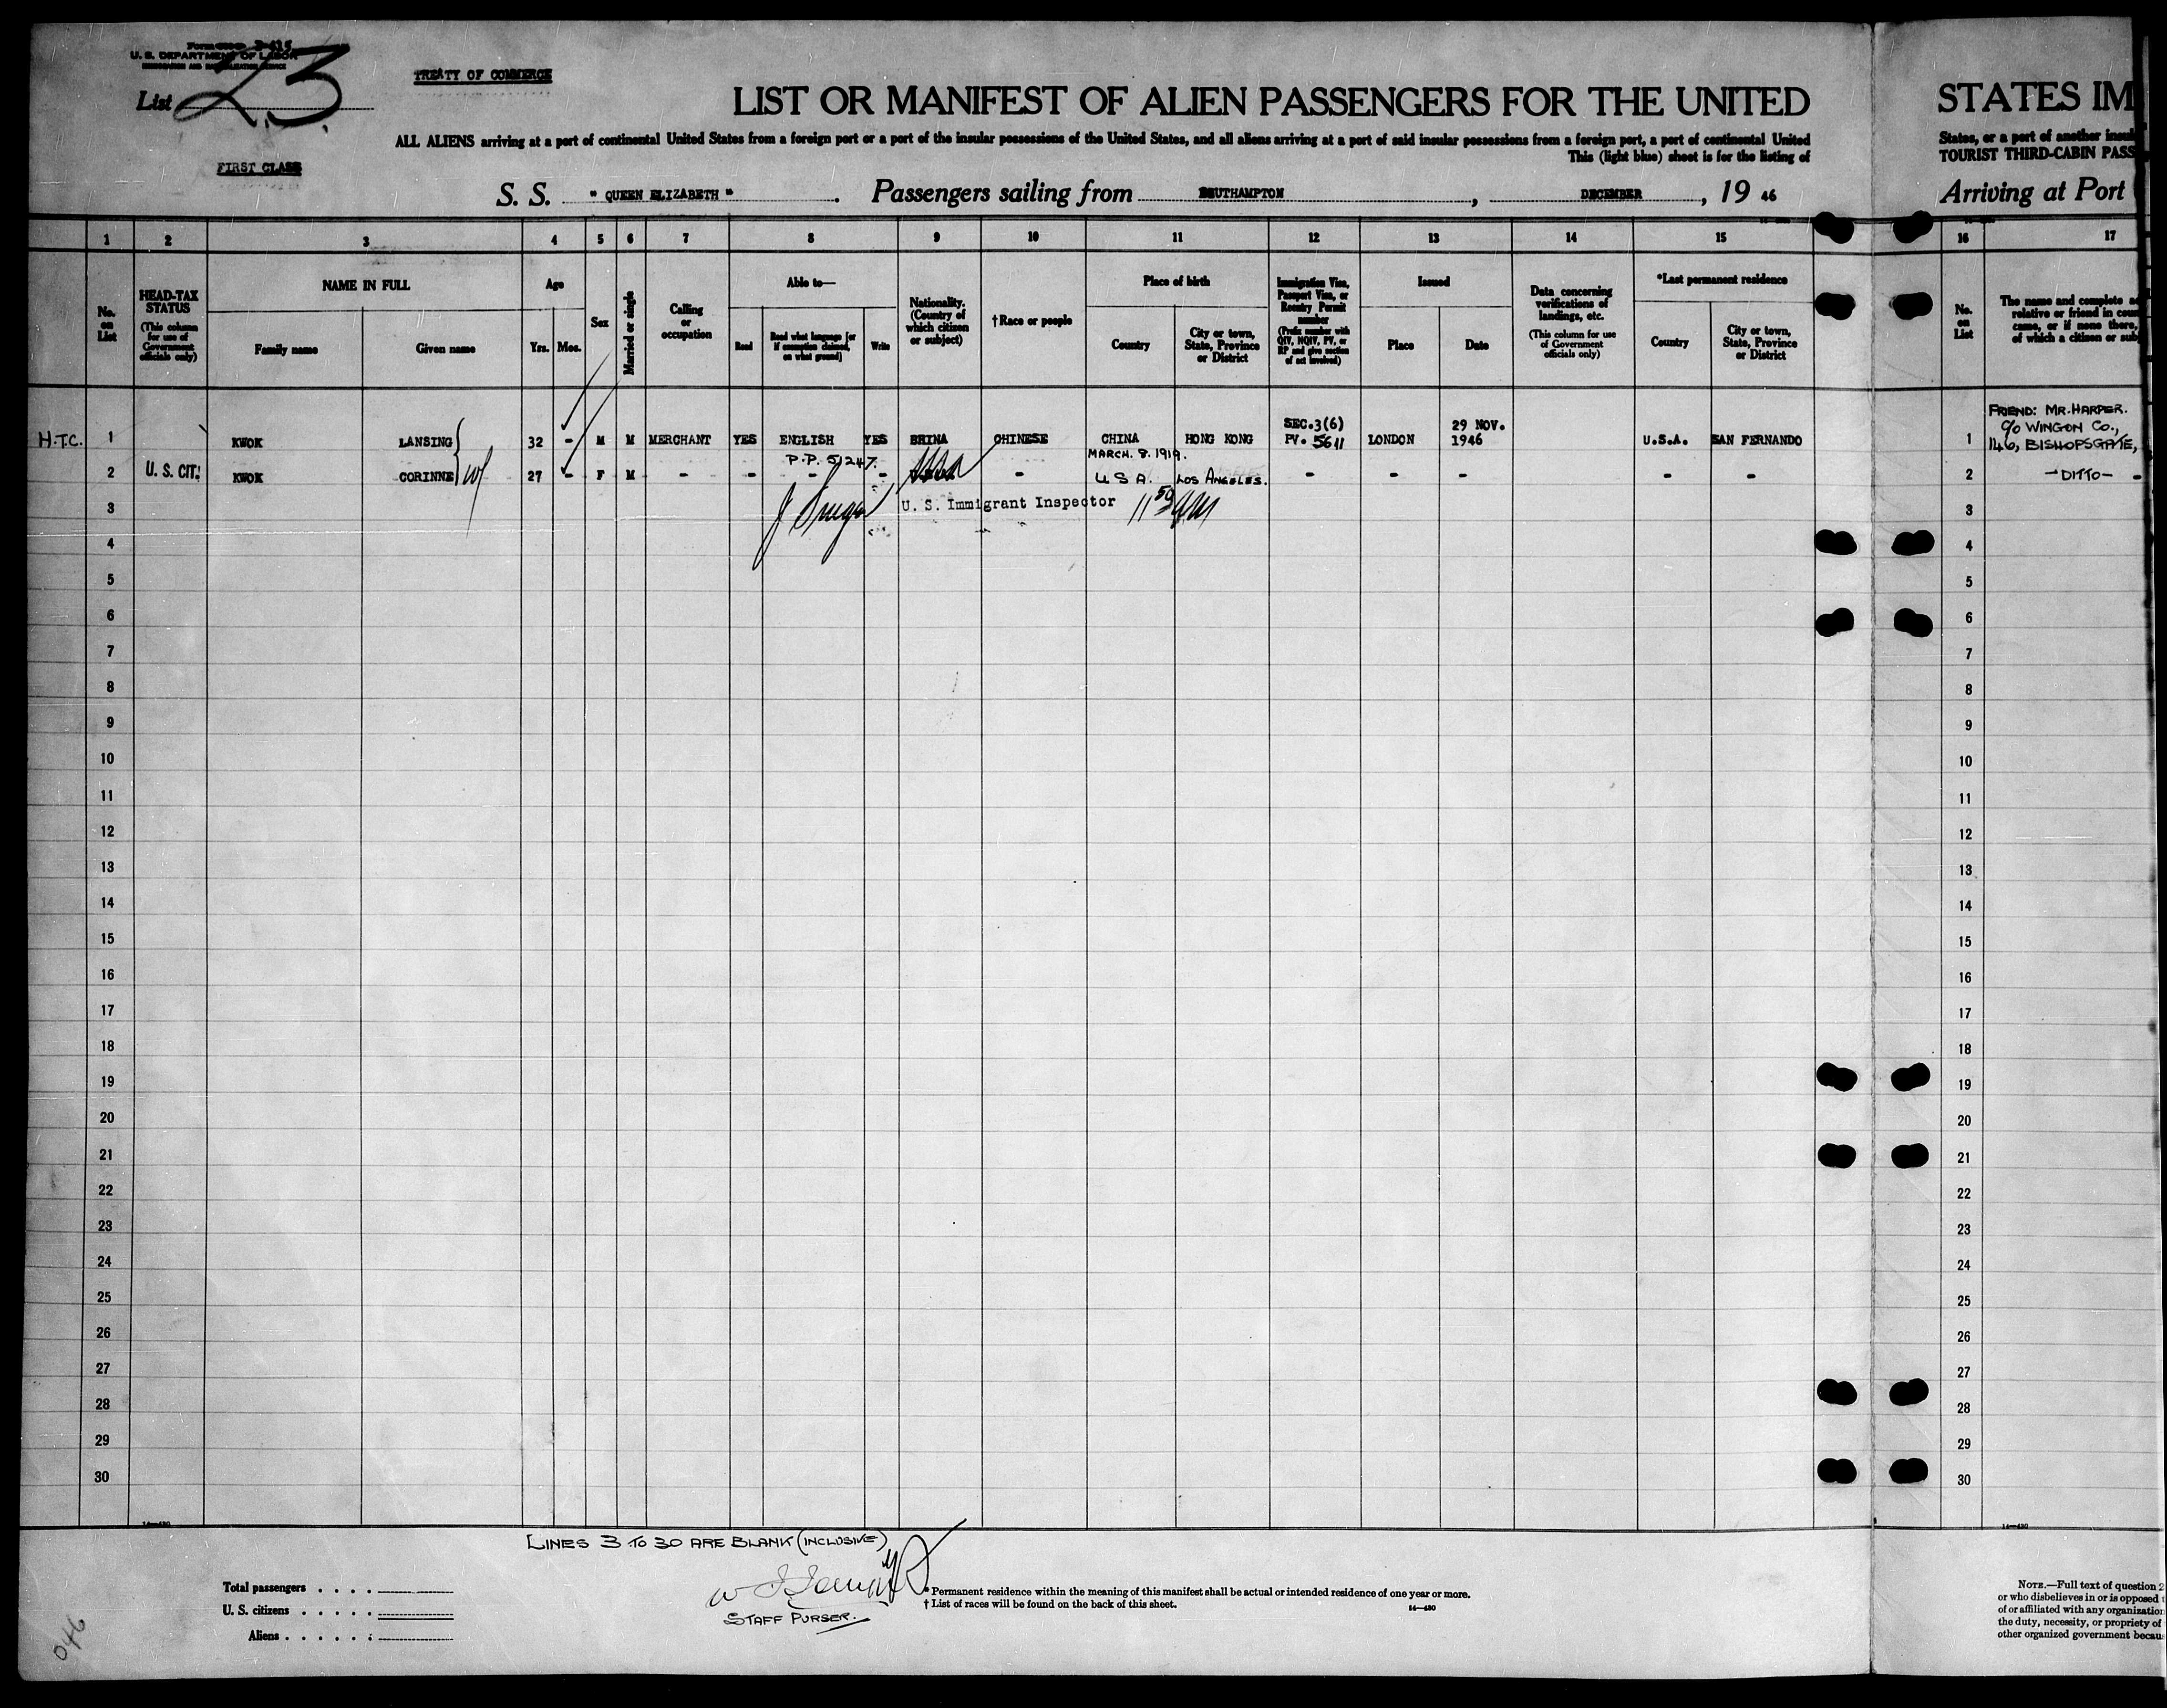 Form 3-415
U. S. DEPARTMENT OF LABOR
IMMIGRATION AND NATURALIZATION SERVICE
List 23
TREATY OF COMMERCE
FIRST CLASS
LIST OR MANIFEST OF ALIEN PASSENGERS FOR THE UNITED
ALL ALIENS arriving at a port of continental United States from a foreign port or a port of the insular possessions of the United States, and all aliens arriving at a port of said insular possessions from a foreign port, a port of continental United
This (light blue) sheet is for the listing of
S. S. " QUEEN ELIZABETH " . Passengers sailing from SOUTHAMPTON , DECEMBER , 19 46
STATES IM
States, or a port of another insul
TOURIST THIRD-CABIN PASS
Arriving at Port
1 2 3 4 5 6 7 8 9 10 11 12 13 14 15
No. on List
HEAD-TAX STATUS
(This column for use of Government officials only)
NAME IN FULL
Family name
Given name
Age
Yrs. Mos.
Sex
Married or single
Calling or occupation
Able to—
Read
Read what language [or if exemption claimed, on what ground]
Write
Nationality. (Country of which citizen or subject)
† Race or people
Place of birth
Country
City or town, State, Province or District
Immigration Visa, Passport Visa, or Reentry Permit number
(Prefix number with QIV, NQIV, PV, or RP and give section of act involved)
Issued
Place
Date
Data concerning verifications of landings, etc.
(This column for use of Government officials only)
*Last permanent residence
Country
City or town, State, Province or District
16 17
No. on List
The name and complete a
relative or friend in coun
came, or if none there,
of which a citizen or sub
H.T.C. 1 KWOK LANSING 32 - M M MERCHANT YES ENGLISH YES CHINA CHINESE CHINA HONG KONG SEC.3(6) PV. 5611 LONDON 29 NOV. 1946 U.S.A. SAN FERNANDO
P.P. 51247.
MARCH. 8. 1919.
2 U. S. CIT. KWOK CORINNE wf 27 - F M - - - - - U S A. LOS ANGELES. - - - - -
U. S. Immigrant Inspector
3
4
5
6
7
8
9
10
11
12
13
14
15
16
17
18
19
20
21
22
23
24
25
26
27
28
29
30
FRIEND: MR. HARPER.
c/o WINGON Co.,
1 146, BISHOPSGATE,
2 - DITTO - -
3
4
5
6
7
8
9
10
11
12
13
14
15
16
17
18
19
20
21
22
23
24
25
26
27
28
29
30
14—430
14—430
LINES 3 TO 30 ARE BLANK (INCLUSIVE)
STAFF PURSER.
Total passengers . . . .
U. S. citizens . . . . .
Aliens . . . . . .
* Permanent residence within the meaning of this manifest shall be actual or intended residence of one year or more.
† List of races will be found on the back of this sheet.
14—430
NOTE.—Full text of question 2
or who disbelieves in or is opposed
of or affiliated with any organization
the duty, necessity, or propriety of
other organized government becau
046